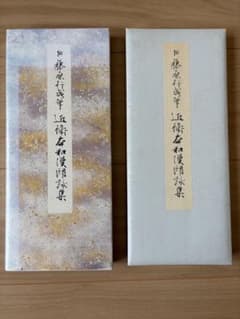 伝藤原行成筆 近衛本和漢朗詠集
伝藤原行成筆 近衛本和漢朗詠集